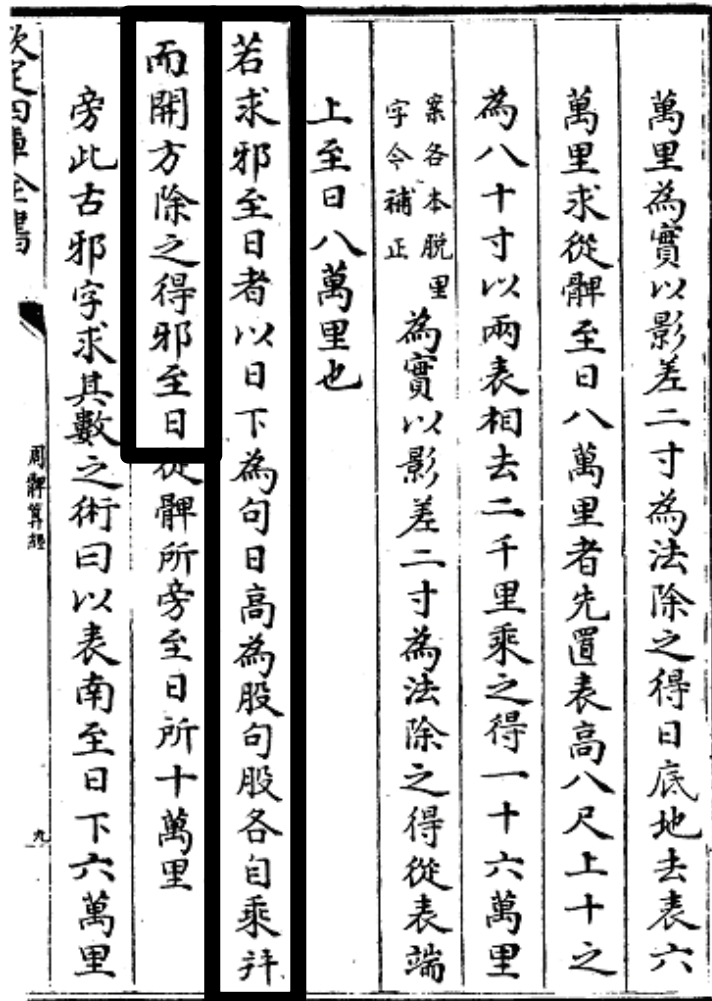 萬里為實以影差二寸為法除之得日底地去表六
萬里求從髀至日八萬里者先置表高八尺上十之
為八十寸以兩表相去二千里乘之得一十六萬里
案各本脱里
字今補正
為實以影差二寸為法除之得從表端
上至日八萬里也
若求邪至日者以日下為句日高為股句股各自乘并
而開方除之得邪至日從髀所旁至日所十萬里
旁此古邪字求其數之術曰以表南至日下六萬里
欽定四庫全書
周髀算經
九